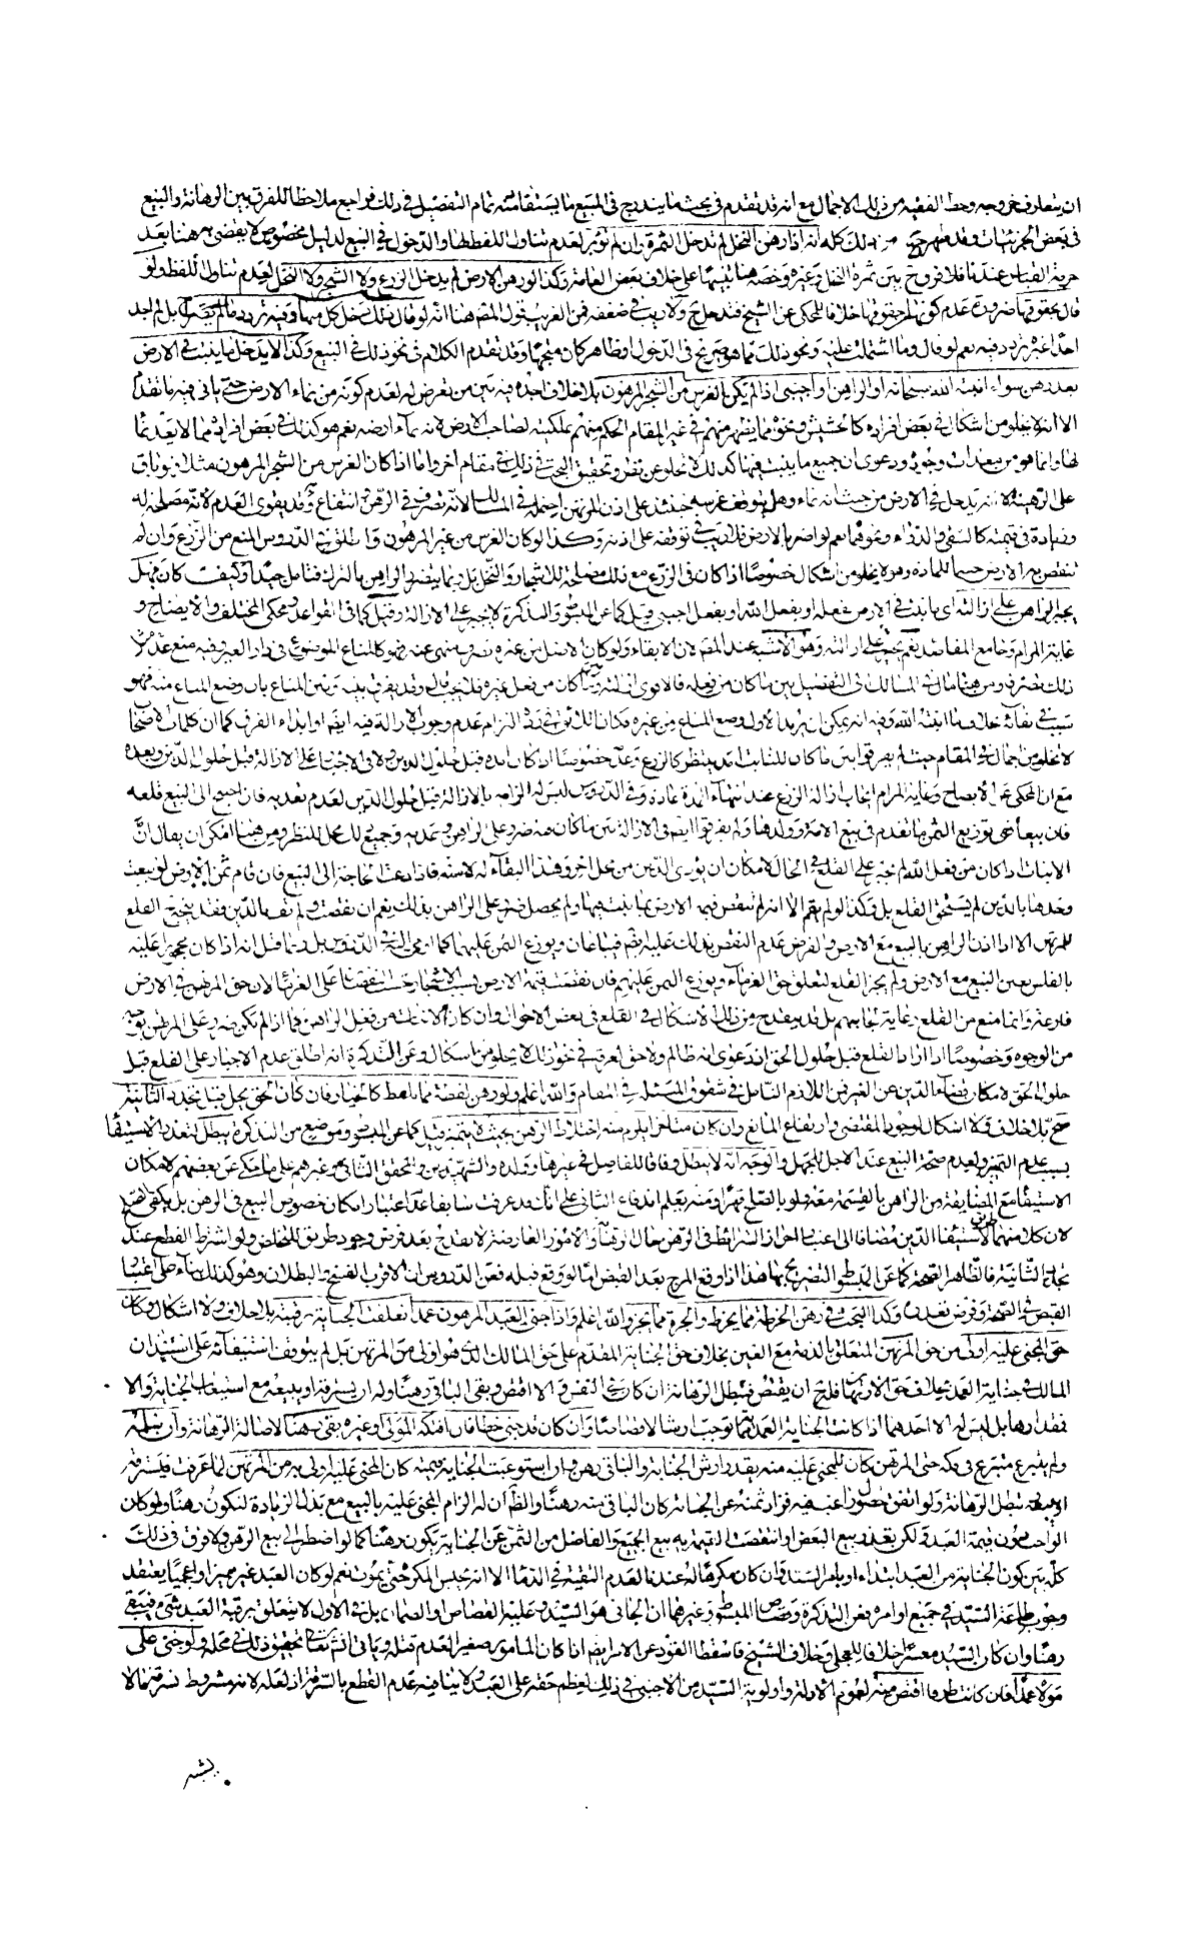 ان يتعارف خروجه وحظ الفقيه من ذلك الاجمال مع انه قد تقدم فى بحث ما يندرج فى المبيع ما يستفاد منه تمام التفصيل فى ذلك فراجع ملاحظا للفرق بين الرهانة والبيع
فى بعض الجزئيات وقد ظهر من ذلك كله انه اذا رهن النخل لم تدخل الثمرة وان لم تؤبر لعدم تناول اللفظ لها والدخول فى البيع لدليل مخصوص لا يقضى به هنا بعد
حرمة القياس عندنا فلا فرق ح بين ثمرة النخل وغيره وخصه هنا بينهما على خلاف بعض العامة وكذا لو رهن الارض لم يدخل الزرع ولا الشجر ولا النخل لعدم تناول اللفظ ولو
قال بحقوقها ضرورة عدم كونها من حقوقها خلافا للمحكى عن الشيخ فتدخل ح ولا ريب فى ضعفه فمن الغريب قول المصنف هنا انه لو قال ذلك دخل وفيه تردد ما لم يصرح بل لم اجد
احدا غيره تردد فيه نعم لو قال وما اشتملت عليه ونحو ذلك مما هو صريح فى الدخول او ظاهر كان متجها وقد تقدم الكلام فى نحو ذلك فى البيع وكذا لا يدخل ما ينبت فى الارض
بعد رهن سواء انبته الله سبحانه او الراهن او اجنبى اذا لم يكن الغرس من الشجر المرهون بلا خلاف اجده فيه بين من تعرض له لعدم كونه من نماء الارض حتى يأتى فيه ما تقدم
الا انه لا يخلو من اشكال فى بعض افراده كالحشيش ونحوه مما يظهر منهم فى غير المقام الحكم منهم بملكيته لصاحب الارض لانه نماء ارضه نعم هو كذلك فى بعض افراده مما لا يعد نماء
لها وانما هو من معدات وجوده ودعوى ان جميع ما ينبت فيها كذلك لا تخلو عن نظر وتحقيق البحث فى ذلك فى مقام اخر واما اذا كان الغرس من الشجر المرهون مثلا فهو باق
على الرهينة لا انه يدخل فى الارض من حيث انه نماء وهل يتوقف غرسه حينئذ على اذن المرتهن احتمله فى المسالك لانه تصرف فى الرهن وانتفاع به وقد يقوى العدم لانه مصلحة له
وزيادة فى قيمته كالسقى والدواء ونحوهما نعم لو اضر بالارض فلا ريب فى توقفه على اذنه وكذا لو كان الغرس من غير المرهون واطلق فى الدروس المنع من الزرع وان لم
تنقص به الارض حسما للمادة وهو لا يخلو من اشكال خصوصا اذا كان فى الزرع مع ذلك مصلحة للاشجار والنخل بل ربما يتضرر الراهن بالترك فتامل جيدا وكيف كان فهل
يجبر الراهن على ازالته اى ما نبت فى الارض بفعله او بفعل الله او بفعل اجنبى قيل كما عن المبسوط والتذكرة لا يجبر على الازالة وقيل كما فى القواعد ومحكى المختلف والايضاح و
غاية المرام وجامع المقاصد نعم يجبر على ازالته وهو الاشبه عند المصنف لان الابقاء ولو كان الاصل من غيره تصرف منهى عنه فهو كالمتاع الموضوع فى دار الغير وفيه منع عد مثل
ذلك تصرفا ومن هنا مال فى المسالك الى التفصيل بين ما كان من فعله فالاقوى ازالته وبين ما كان من فعل غيره فلا يجب وقد يفرق بينه وبين المتاع بان وضع المتاع منه فهو
سبب فى بقائه بخلاف ما انبته الله وفيه انه يمكن ان يريد الاول وضع المتاع من غيره
لا تخلو من اجمال فى المقام حيث لم يفرقوا بين ما كان للنابت امد ينتظر كالزرع وعدمه خصوصا اذا كان امده قبل حلول الدين ولا فى الاجبار على الازالة قبل حلول الدين وبعده
مع ان المحكى عن الايضاح وغاية المرام ايجاب ازالة الزرع عند انتهاء المدة عادة وفى الدروس ليس له الزامه بالازالة قبل حلول الدين لعدم تعديه فان احتيج الى البيع قلعه
فان بيعا ضى توزيع الثمن ما تقدم فى بيع الامة وولدها ولم يفرقوا ايضا فى الازالة بين ما كان منه ضرر على الراهن وعدمه وجميع ذلك محل للنظر ومن هنا امكن ان يقال ان
الانبات اذا كان من فعل الله لم يجبر على القلع فى الحال لامكان ان يؤدى الدين من محل اخر وهذا البقاء له لا منه فاذا دعت الحاجة الى البيع فان قام ثمن الارض لو بيعت
وحدها بالدين لم يستحق القلع بل وكذا لو لم يقم الا انه لم تنقص قيمة الارض بما نبت فيها ولم يحصل ضرر على الراهن بذلك نعم ان نقصت ولم تف بالدين فقد يتجه القلع
للمرتهن الا اذا اذن الراهن بالبيع مع الارض والفرض عدم النقص بذلك عليه رقم فيباعان ويوزع الثمن عليهما كما اومى اليه فى الدروس بل ربما قيل انه اذا كان محجورا عليه
بالفلس يعين البيع مع الارض ولم يجز القلع لتعلق حق الغرماء ويوزع الثمن عليهم فان نقصت قيمة الارض بسبب الاشجار حسب نقصها على الغرماء لان حق المرتهن فى الارض
فارغة وانما منع من القلع رعاية لجانبهم بل قد ينقدح من ذلك الاشكال فى القلع فى بعض الاحوال وان كان الانبات من فعل الراهن فيما اذا لم يكن ضرر على المرتهن بوجه
من الوجوه وخصوصا اذا اراد القلع قبل حلول الحق اذ دعوى انه ظالم ولا حق لعرقه فى نحو ذلك لا يخلو من اشكال وعن التذكرة انه اطلق عدم الاجبار على القلع قبل
حلول الحق لامكان قضاء الدين عن الغير فمن اللازم التامل فى شقوق المسئلة فى المقام والله اعلم ولو رهن لقطة مما يلقط كالخيار فان كان الحق يحل قبل تجدد الثانية
صح بلا خلاف ولا اشكال لوجود المقتضى وارتفاع المانع وان كان متاخرا يلزم منه اختلاط الرهن بحيث لا يتميز قيل كما عن المبسوط وموضع من التذكرة يبطل لتعذر الاستيفاء
بسبب عدم التميز ولعدم صحة البيع عند الاجل للجهل والوجه انه لا يبطل وفاقا للفاضل فى غيرها وولده والشهيدين والمحقق الثانى وغيرهم على ما حكى عن بعضهم لامكان
الاستيفاء مع المضايقة من الراهن بالقسمة معه ولو بالصلح قهرا ومنه يعلم اندفاع الثانى على انك قد عرفت سابقا عدم اعتبار امكان خصوص البيع فى الرهن بل يكفى الصلح
لان كلا منهما لاستيفاء الدين مضافا الى اعتبار احراز الشرائط فى الرهن حال ارتهانه والامور العارضة لا تقدح بعد فرض وجود طريق للتخلص ولو اشترط القطع عند
تجدد الثانية فالظاهر الصحة كما عن المبسوط التصريح بها هذا اذا وقع المزج بعد القبض اما لو وقع قبله فعن الدروس ان الاقرب الفسخ والبطلان وهو كذلك بناء على اعتبار
القبض فى الصحة وفرض تعذره وكذا البحث فى رهن الخرطة مما يخرط والجزة مما يجز والله اعلم واذا جنى العبد المرهون عمدا تعلقت الجناية برقبته بلا خلاف ولا اشكال وكان
حق المجنى عليه اولى من حق المرتهن المتعلق بالذمة مع العين بخلاف حق الجناية المقدم على حق المالك الذى هو اولى من المرتهن بل لم يتوقف استيفاؤه على استيذان
المالك فى جناية العمد بخلاف حق الارتهان فله ح ان يقتص فتبطل الرهانة ان كان فى النفس والا اقتص وبقى الباقى رهنا وله ان يسترقه او يبيعه مع استيعاب الجناية والا
فقدارها بل ليس له الا احدهما اذا كانت الجناية العمدية مما توجب ارشا لا قصاصا وان كان قد جنى خطا فان افتكه المولى او غيره بقى رهنا لاصالة الرهانة وان سلمه
ولم يتبرع متبرع فى فكه حتى المرتهن كان للمجنى عليه منه بقدر ارش الجناية والباقى رهن وان استوعبت الجناية قيمته كان المجنى عليه اولى به من المرتهن لما عرفت فيسترقه
او يبيعه تبطل الرهانة ولو اتفق حصول راغب فيه فزاد ثمنه عن الجناية كان الباقى منه رهنا والظ ان له الزام المجنى عليه بالبيع مع بذل الزيادة لتكون رهنا ولو كان
الواجب دون قيمة العبد ولكن تعذر بيع البعض او انتقصت القيمة به بيع الجميع والفاضل من الثمن عن الجناية يكون رهنا كما لو اضطر الى بيع الرهن ولا فرق فى ذلك
كله بين كون الجناية من العبد ابتداء او بامر السيد وان كان مكرها له عندنا لعدم التقية فى الدماء الا انه يحبس المكره حتى يموت نعم لو كان العبد غير مميز او اعجميا يعتقد
وجوب طاعة السيد فى جميع اوامره فعن التذكرة وقصاص المبسوط وغيرهما ان الجانى هو السيد وعليه القصاص او الضمان بل فى الاول لا يتعلق برقبة العبد شئ فيبقى
رهنا وان كان السيد معسرا خلافا للمحلى وخلاف الشيخ فاسقط القود عن الامر ايضا اذا كان المامور صغيرا لعدم قتله وياتى انشاء الله تحقيق ذلك فى محله ولو جنى على
مولاه عمدا فان كانت طرفا اقتص منه لعموم الادلة واولوية السيد من الاجنبى فى ذلك لعظم حقه على العبد ولا ينافيه عدم القطع بالسرقة اذ لعله لانه مشروط بسرقة ما لا